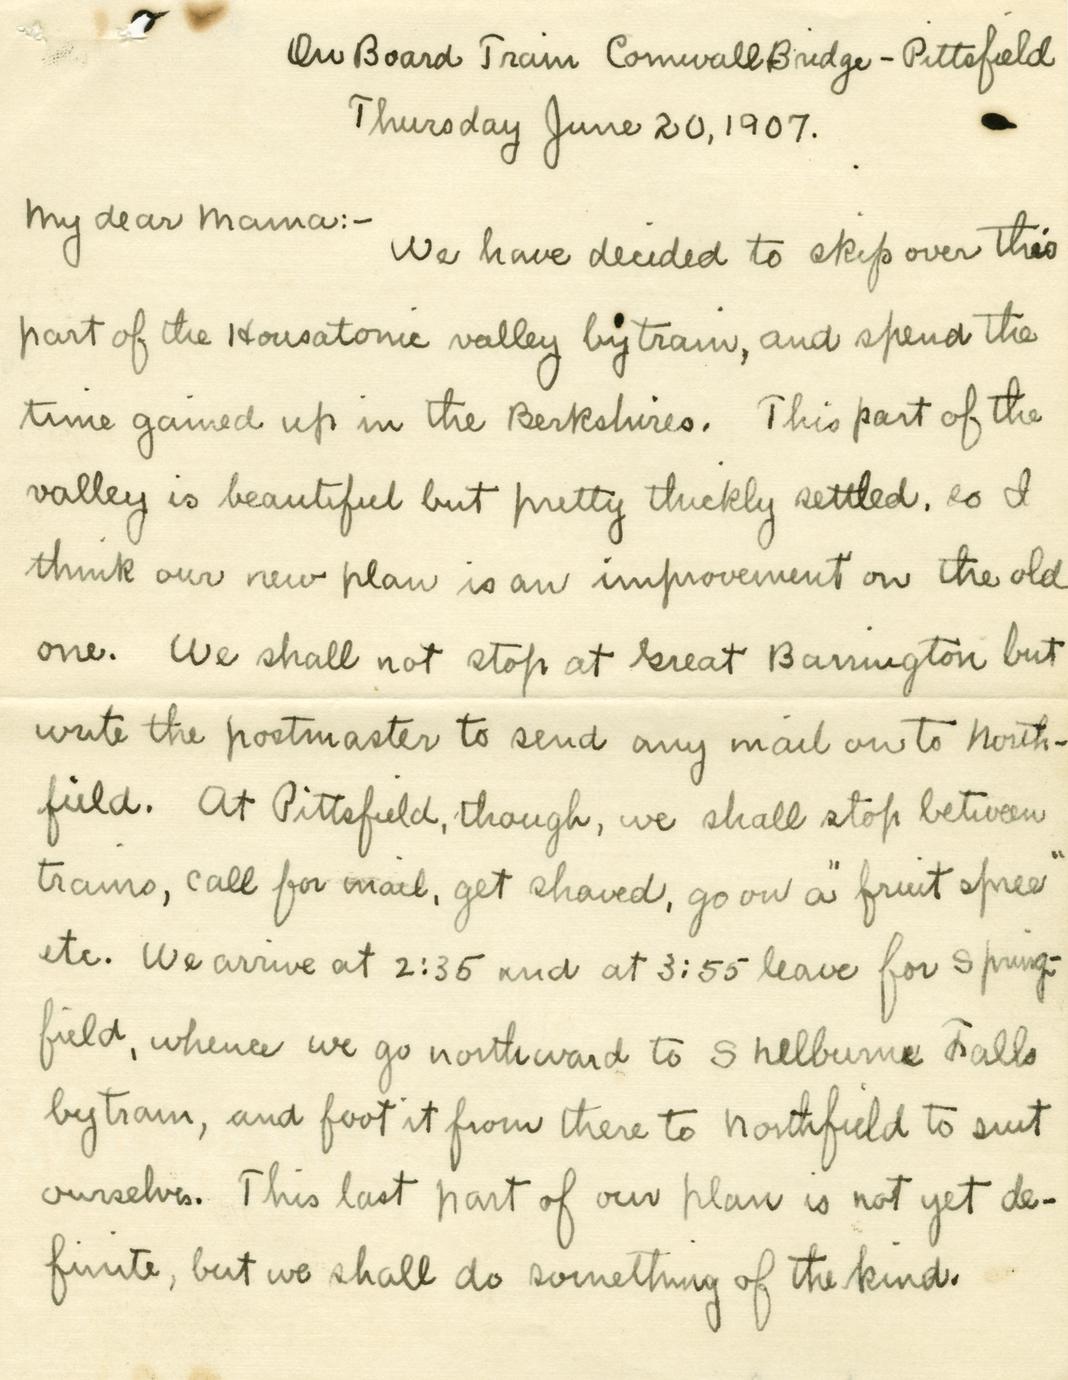 On Board Train Cornwall Bridge - Pittsfield
Thursday June 20, 1907.
My dear Mama:-
We have decided to skip over this
part of the Housatonic valley by train, and spend the
time gained up in the Berkshires. This part of the
valley is beautiful but pretty thickly settled, so I
think our new plan is an improvement on the old
one. We shall not stop at Great Barrington but
write the postmaster to send any mail on to North-
field. At Pittsfield, though, we shall stop between
trains, call for mail, get shaved, go on a "fruit spree"
etc. We arrive at 2:35 and at 3:55 leave for Spring-
field, whence we go northward to Shelburne Falls
by train, and foot it from there to Northfield to suit
ourselves. This last part of our plan is not yet de-
finite, but we shall do something of the kind.